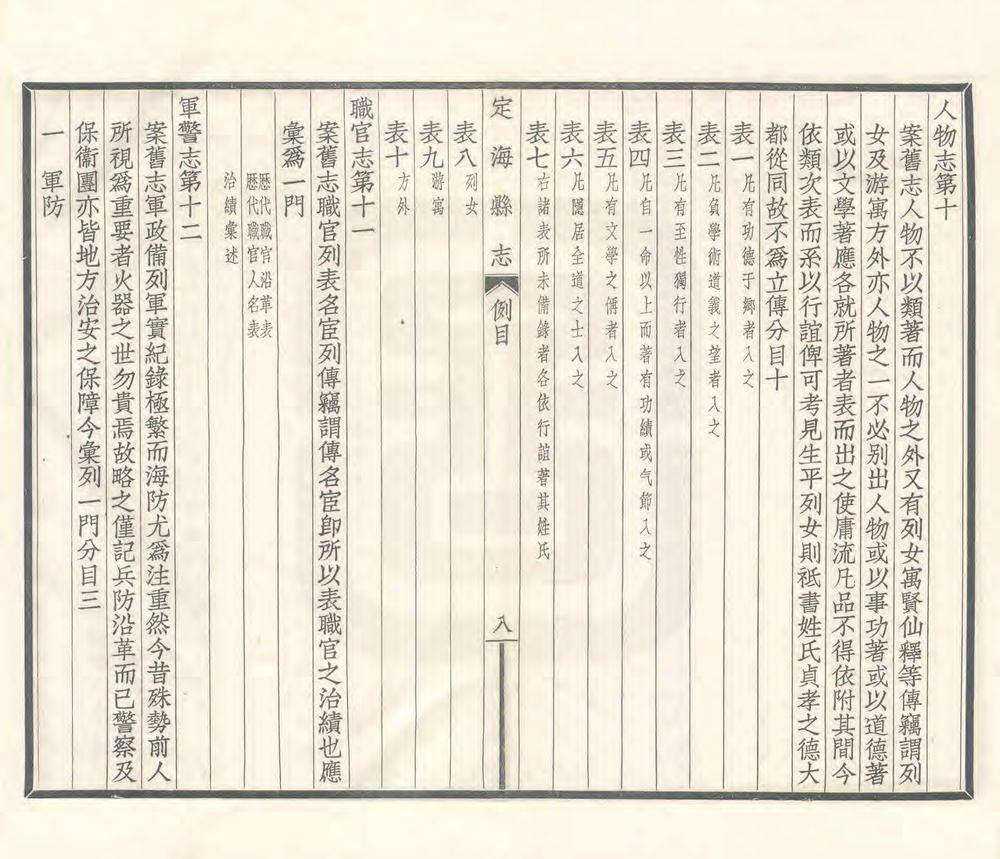 人物志第十
案舊志人物不以類著而人物之外又有列女寓賢仙釋等傳竊謂列
女及游寓方外亦人物之一不必别出人物或以事功著或以道德著
或以文學著應各就所著者表而出之使庸流凡品不得依附其間今
依類次表而系以行誼俾可考見生平列女則祗書姓氏貞孝之德大
都從同故不爲立傳分目十
表一凡有功德于鄉者入之
表二凡負學術道義之望者入之
表三凡有至性獨行者入之
表四凡自一命以上而著有功績或气節入之
表五凡有文學之偁者入之
表六凡隱居全道之士入之
表七右諸表所未備錄者各依行誼著其姓氏
定海縣志 例目 八
表八列女
表九游寓
表十方外
職官志第十一
案舊志職官列表名宦列傳竊謂傳名宦卽所以表職官之治績也應
彙爲一門
歷代職官沿革表
歷代職官人名表
治績彙述
軍警志第十二
案舊志軍政備列軍實紀錄極繁而海防尤爲注重然今昔殊勢前人
所視爲重要者火器之世勿貴焉故略之僅記兵防沿革而已警察及
保衞團亦皆地方治安之保障今彙列一門分目三
一 軍防